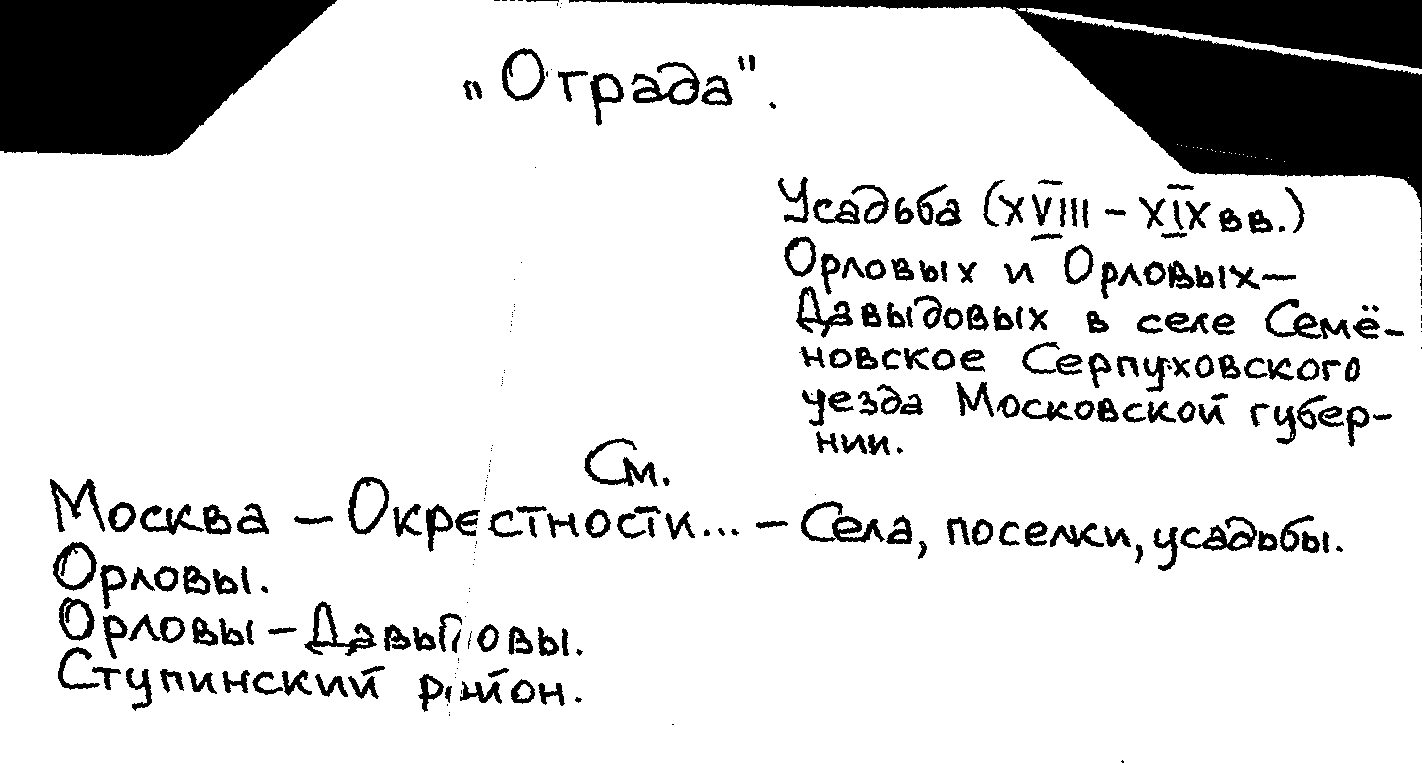 „Отрада".
Усадьба (XVIII – XIX вв.)
Орловых и Орловых–
Давыдовых в селе Семё-
новское Серпуховского
уезда Московской губер-
нии.
См.
Москва – Окрестности... – Села, поселки, усадьбы.
Орловы.
Орловы – Давыдовы.
Ступинский район.